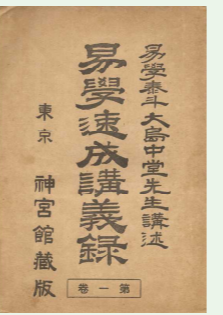 易學泰斗大島中堂先生講述
易學速成講義録
東京 神宮館藏版
第一卷